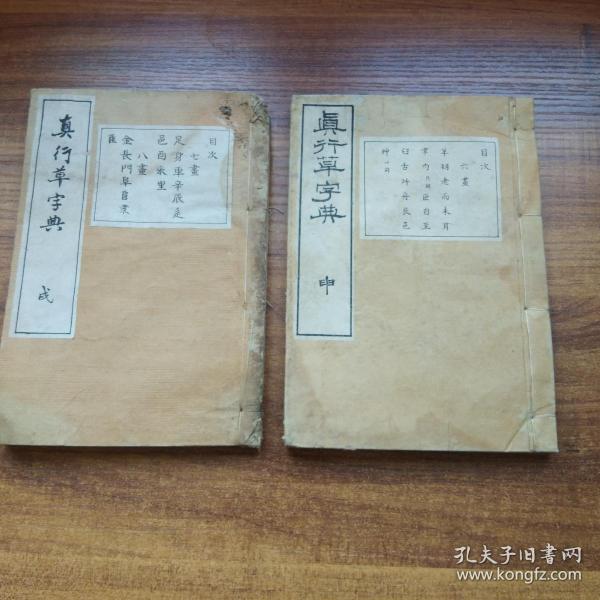 真行草字典
戌
目次
七畫
足身車辛辰辵
邑酉釆里
八畫
金長門阜隶
眞行草字典
申
目次
六畫
羊羽老而耒耳
聿肉臣自至
臼舌舛舟艮色
艸
孔夫子旧书网
www.kongfz.com